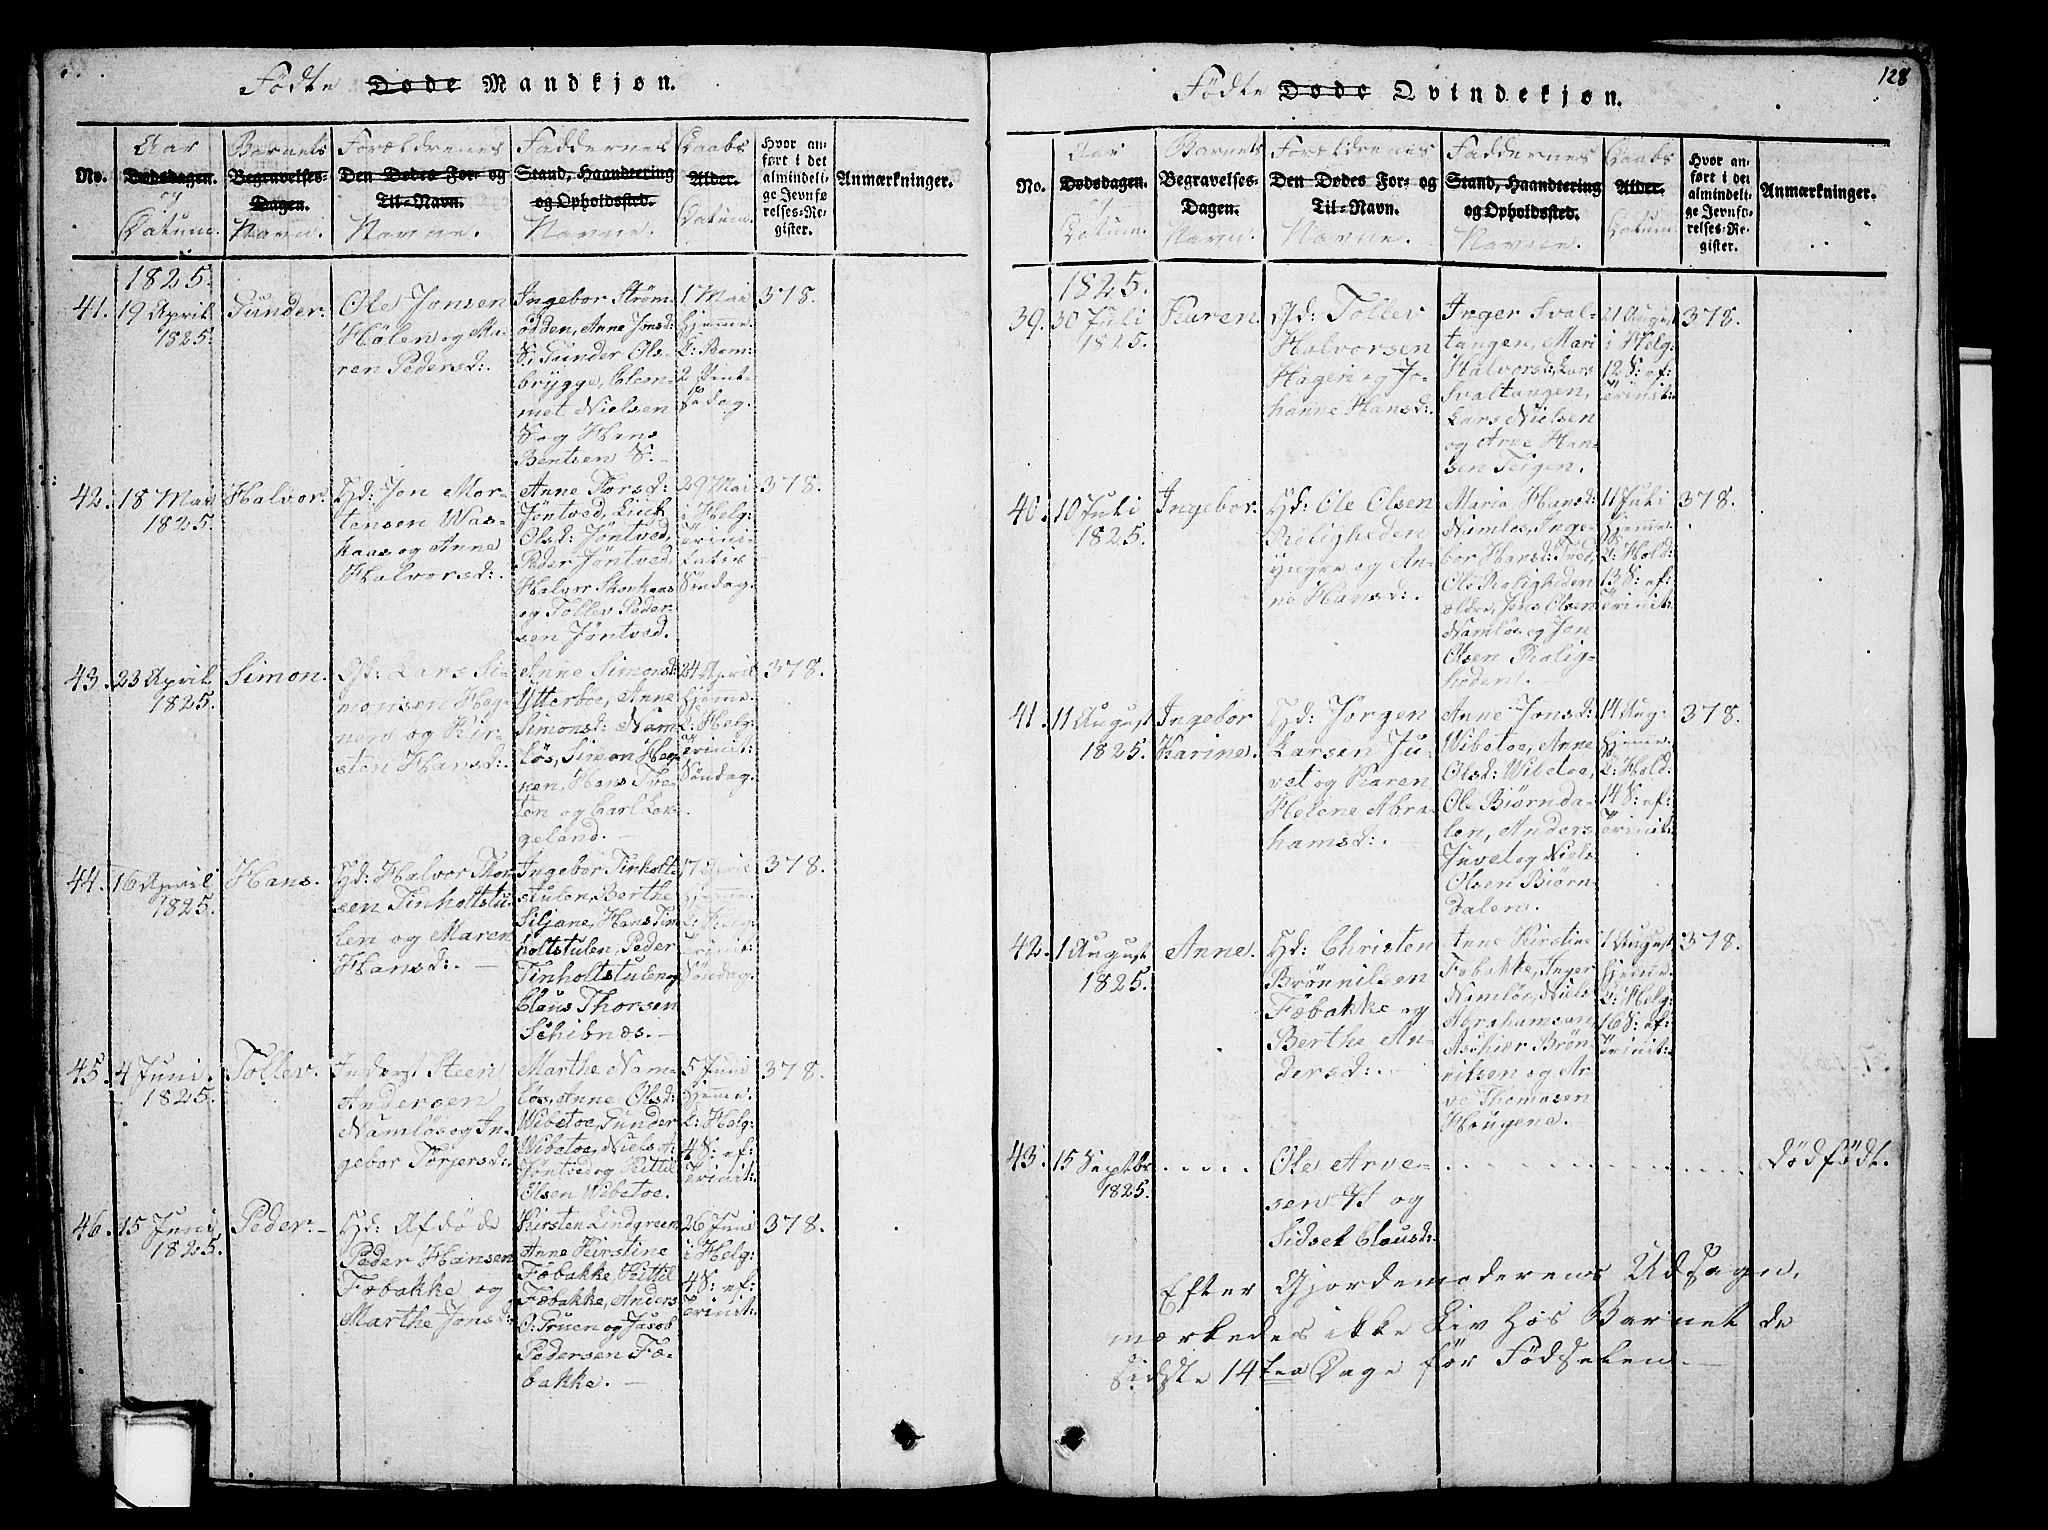 Fødte Døde Mandkjøn.
No.
Aar
Dødsdagen.
og
Datum.
Barnets
Begravelses-
Dagen.
Navn.
Forældrenes
Den Dødes For- og
Til-Navn.
Navne.
Faddernes
Stand, Haandtering
og Opholdssted.
Navne.
Daabs
Alder.
Datum.
Hvor an-
ført i det
almindeli-
ge Jevnfø-
relses-Re-
gister.
Anmærkninger.
1825.
41.
19 April
1825.
Gunder.
Ole Jonsen
Hølen og Ma-
ren Pedersd:.
Ingebor Strøm-
odden, Anne Jonsd:
S, Gunder Ols-
brygge, Clem-
met Nielsen
S og Hans
Bentsen S.
1 Mai
hjemme.
D: Bam:
2 Pint-
sedag.
378.
42.
18 Mai
1825.
Halvor.
Hd: Jon Mor-
tensen Was-
haas og Anne
Halvorsd:.
Anne Torsd:
Jøntved,
Olsd: Jøntved,
Peder Jøntved,
Halvor
og Tollev Peder-
sen Jøntved.
29 Mai
i Helg:
Trini-
tatis
Søndag.
378.
43.
23 April
1825.
Simon.
Gd: Lars Si-
monsen Heg-
nen og Kir-
sten Hansd:.
Anne Simonsd:
Ytterbøe, Anne
Simonsd: Nam-
løs, Simon Heg-
nen, Hans Tve-
ten og Carl Lan-
geland.
24 April
hjemme.
D: Helg:
Trinit:
Søndag.
378.
44.
16 April
1825.
Hans.
Hd: Halvor Thor-
sen Tinholtstu-
len og Maren
Hansd:.
Ingebor Tinholt-
stulen, Berthe
Siljane, Hans Tin-
holtstulen, Peder
Tinholtstulen og
Claus Thorsen
Schibnæs.
17 April
hjemme.
D: Helg:
Trinit:
Søndag.
378.
45.
4 Juni
1825.
Tollev.
Inderst Steen
Andersen
Namløs og In-
gebor Torjersd:.
Marthe Nam-
løs, Anne Olsd:
Wibetoe, Gunder
Wibetoe, Niels A:
Jøntved og Kittil
Olsen Wibetoe.
5 Juni
hjemme.
D: Helg:
4 S: ef:
Trinit:
378.
46.
15 Juni
1825.
Peder.
Hd: Afdøde
Peder Hansen
Føbakke og
Marthe Jonsd:
Kirsten Lindgreen
Anne Kirstine
Føbakke, Kittil
Føbakke, Anders
O: Gruen og Jacob
Pedersen Fø-
bakke.
26 Juni
i Helg:
4 S: ef:
Trinit:
378.
128
Fødte Døde Qvindekjøn.
No.
Aar
Dødsdagen.
og
Datum.
Barnets
Begravelses-
Dagen.
Navn.
Forældrenes
Den Dødes For- og
Til-Navn.
Navne.
Faddernes
Stand, Haandtering
og Opholdssted.
Navne.
Daabs
Alder.
Datum.
Hvor an-
ført i det
almindeli-
ge Jevnfø-
relses-Re-
gister.
Anmærkninger.
1825.
39.
30 Juli
1825.
Karen.
Gd: Tollev
Halvorsen
Hagen og Jo-
hanne Hansd:.
Inger Sval-
tangen, Mari
Halvorsd: Lars
Svaltangen,
Lars Nielsen
og Arve Han-
sen Teigen.
21 August
i Helg:
12 S: ef:
Trinit:
378.
40.
10 Juli
1825.
Ingebor.
Hd: Ole Olsen
Roligheden
yngre og An-
ne Hansd:.
Maria Hansd:
Namløs, Inge-
bor Hansd: Tved,
Ole Roligheden
ældre, Jens Olsen
Namløs og Jon
Olsen Rolig-
heden.
11 Juli
hjemme.
D: Hold:
13 S: ef:
Trinit:
378.
41.
11 August
1825.
Ingebor
Karine.
Hd: Jørgen
Larsen Ju-
vet og Karen
Helene Abra-
hamsd:.
Anne Jonsd:
Wibetoe, Anne
Olsd: Wibetoe,
Ole Biørnda-
len, Anders
Juvet og Niels
Olsen Biørn-
dalen.
14 Aug:
hjemme.
D: Hold:
14 S: ef:
Trinit:
378.
42.
1 August
1825.
Anne.
Hd: Christen
Brønnilsen
Føbakke og
Berthe An-
dersd:.
Anne Kirstine
Føbakke, Inger
Namløs, Niels
Abrahamsen
Aschier Brøn-
nilsen og Ar-
ve Thomasen
Haugene.
7 August
hjemme.
D: Helg:
16 S: ef:
Trinit:
378.
43.
15 Septbr
1825.
Ole Arve-
sen H og
Sidsel Clausd:
Dødfødt.
Efter Gjordemoderens Udsagn,
mærkedes ikke Liv hos Barnet de
sidste 14ten Dage før Fødselen.